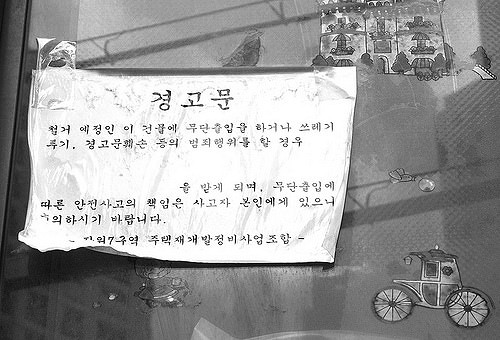 경고문
철거 예정인 이 건물에 무단출입을 하거나 쓰레기
투기, 경고문훼손 등의 범죄행위를 할 경우
을 받게 되며, 무단출입에
따른 안전사고의 책임은 사고자 본인에게 있으니
의하시기 바랍니다.
- 7구역 주택재개발정비사업조합 -